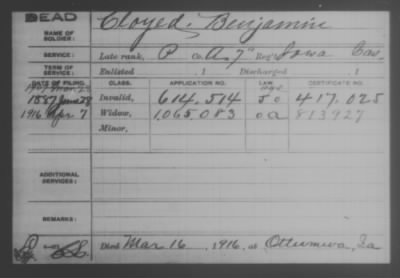 DEAD
NAME OF SOLDIER: Cloyed, Benjamin
SERVICE: Late rank, P Co. A, 7" Reg't Iowa Cav.
TERM OF SERVICE: Enlisted , 1 Discharged , 1
DATE OF FILING. CLASS. APPLICATION NO. LAW. CERTIFICATE NO.
1887 June 28 Invalid, 614,514 417,025
1916 Apr 7 Widow, 1,065,083 813927
Minor,
ADDITIONAL SERVICES:
REMARKS:
Died Mar 16, 1916, at Ottumwa, Ia